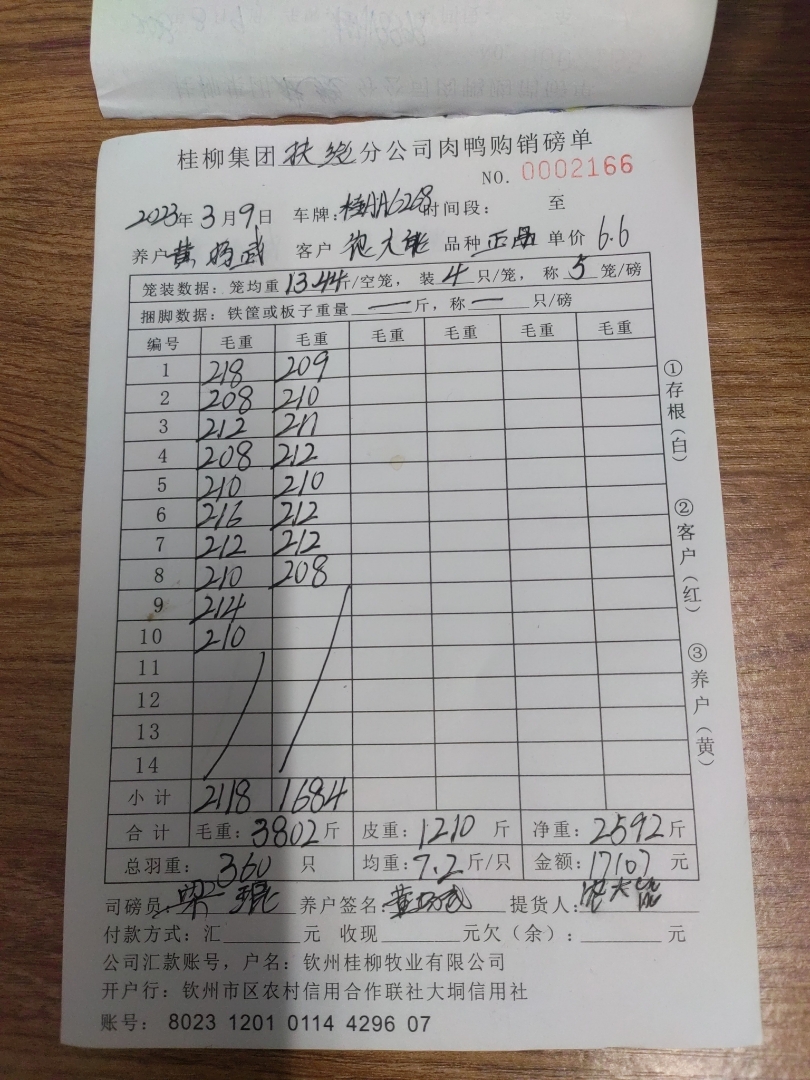 桂柳集团扶绥分公司肉鸭购销磅单
NO. 0002166
2023年3月9日 车牌: 桂AA6268 时间段: 至
养户 黄 武 客户 大 品种 正品 单价 6.6
笼装数据: 笼均重 13.44斤/空笼, 装 4 只/笼, 称 5 笼/磅
捆脚数据: 铁筐或板子重量 — 斤, 称 — 只/磅
编号 毛重 毛重 毛重 毛重 毛重 毛重
1 218 209
2 208 210
3 212 211
4 208 212
5 210 210
6 216 212
7 212 212
8 210 208
9 214
10 210
11
12
13
14
小计 2118 1684
合计 毛重: 3802斤 皮重: 1210 斤 净重: 2592斤
总羽重: 360 只 均重: 7.2斤/只 金额: 17107 元
司磅员: 梁 琨 养户签名: 黄 武 提货人: 大
付款方式: 汇 元 收现 元欠(余): 元
公司汇款账号, 户名: 钦州桂柳牧业有限公司
开户行: 钦州市区农村信用合作联社大垌信用社
账号: 8023 1201 0114 4296 07
①存根(白) ②客户(红) ③养户(黄)